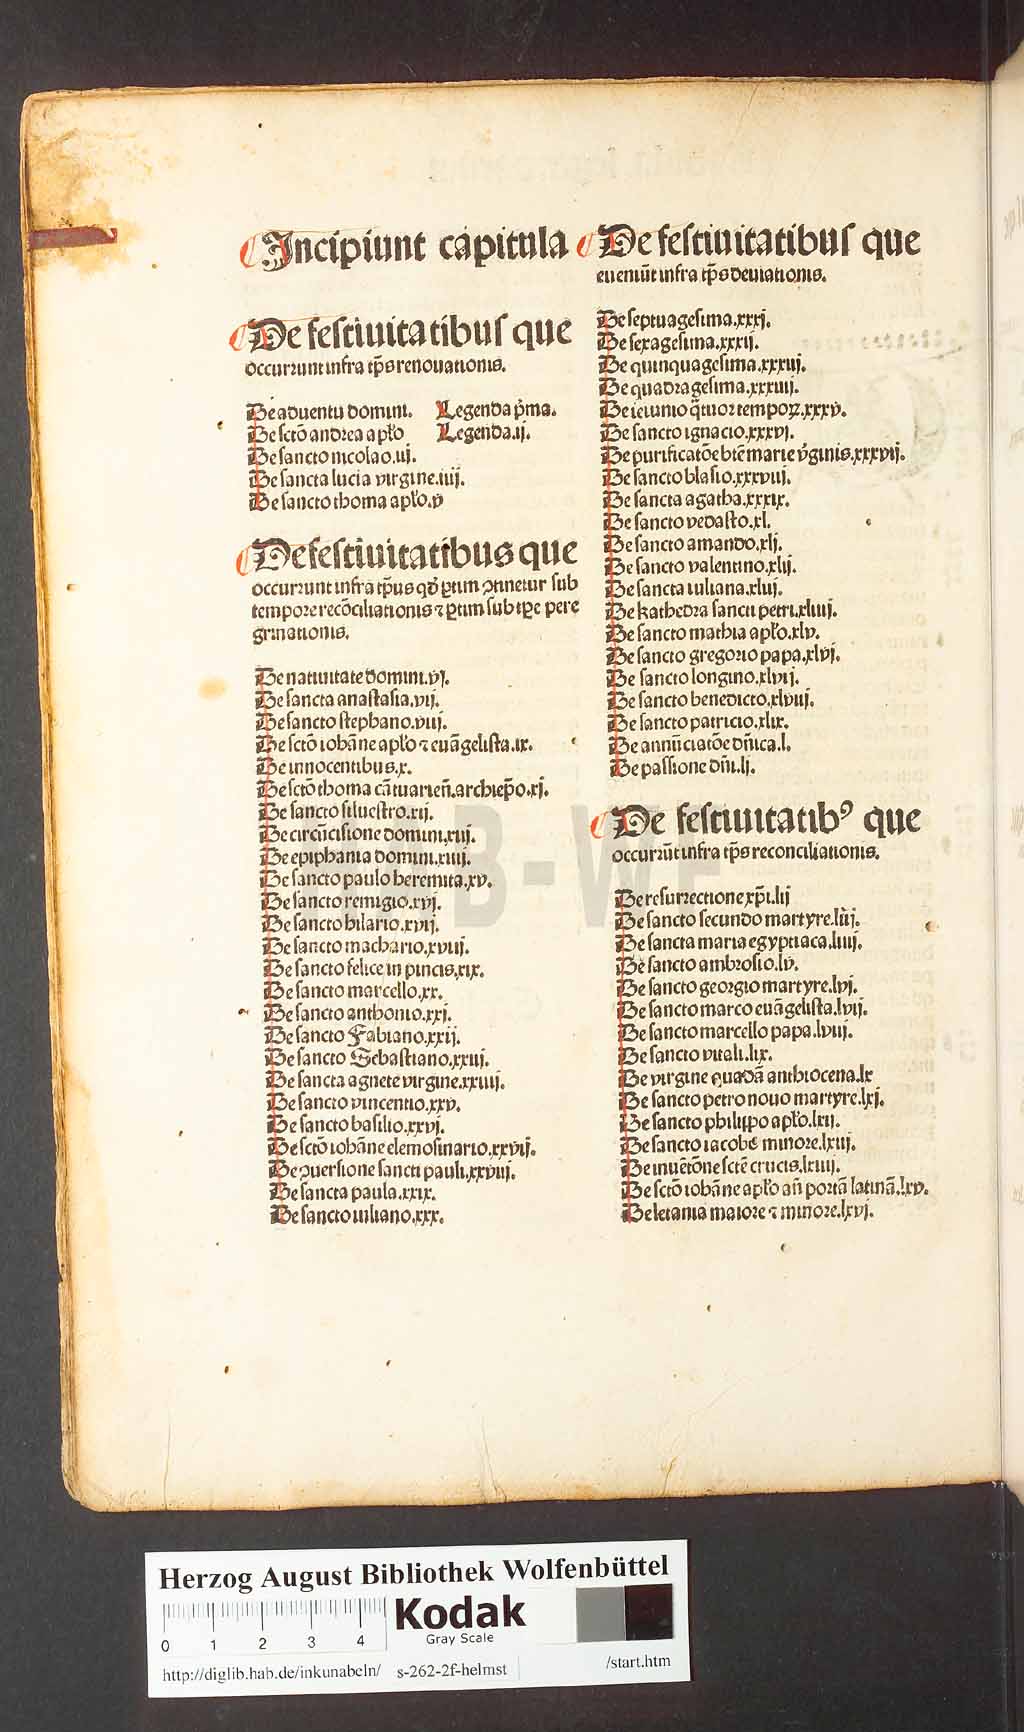 Incipiunt capitula
De festiuitatibus que
occurrunt infra tp̄s renouationis.
De aduentu domini. Legenda p̄ma.
De sctō andrea apl̄o Legenda.ij.
De sancto nicolao.iij.
De sancta lucia virgine.iiij.
De sancto thoma apl̄o.v
De festiuitatibus que
occurrunt infra tp̄us qd̓ ꝑtim ↄtinetur sub
tempore recōciliationis ⁊ ꝑtim sub tꝑe pere
grinationis.
De natiuitate domini.vj.
De sancta anastasia.vij.
De sancto stephano.viij.
De sctō iohāne apl̄o ⁊ euāgelista.ix.
De innocentibus.x.
De sctō thoma cātuarien̄.archiep̄o.xj.
De sancto siluestro.xij.
De circūcisione domini.xiij.
De epiphania domini.xiiij.
De sancto paulo heremita.xv.
De sancto remigio.xvj.
De sancto hilario.xvij.
De sancto machario.xviij.
De sancto felice in pincis.xix.
De sancto marcello.xx.
De sancto anthonio.xxj.
De sancto Fabiano.xxij.
De sancto Sebastiano.xxiij.
De sancta agnete virgine.xxiiij.
De sancto vincentio.xxv.
De sancto basilio.xxvj.
De sctō iohāne elemosinario.xxvij.
De ↄuersione sancti pauli.xxviij.
De sancta paula.xxix.
De sancto iuliano.xxx.
De festiuitatibus que
eueniūt infra tp̄s deuiationis.
De septuagesima.xxxj.
De sexagesima.xxxij.
De quinquagesima.xxxiij.
De quadragesima.xxxiiij.
De ieiunio q̄tuor tempoꝝ.xxxv.
De sancto ignacio.xxxvj.
De purificatōe btē marie v̓ginis.xxxvij.
De sancto blasio.xxxviij.
De sancta agatha.xxxix.
De sancto vedasto.xl.
De sancto amando.xlj.
De sancto valentino.xlij.
De sancta iuliana.xliij.
De kathedra sancti petri.xliiij.
De sancto mathia apl̄o.xlv.
De sancto gregorio papa.xlvj.
De sancto longino.xlvij.
De sancto benedicto.xlviij.
De sancto patricio.xlix.
De annūciatōe dn̄ica.l.
De passione dn̄i.lj.
De festiuitatibꝰ que
occurrūt infra tp̄s reconciliationis.
De resurrectione xp̄i.lij
De sancto secundo martyre.liij.
De sancta maria egyptiaca.liiij.
De sancto ambrosio.lv.
De sancto georgio martyre.lvj.
De sancto marco euāgelista.lvij.
De sancto marcello papa.lviij.
De sancto vitali.lix.
De virgine quadā anthiocena.lx
De sancto petro nouo martyre.lxj.
De sancto philippo apl̄o.lxij.
De sancto iacobo minore.lxiij.
De inuētōne sctē crucis.lxiiij.
De sctō iohāne apl̄o an̄ portā latinā.lxv.
De letania maiore ⁊ minore.lxvj.
HAB-WF
Herzog August Bibliothek Wolfenbüttel
0 1 2 3 4
Kodak
Gray Scale
http://diglib.hab.de/inkunabeln/ s-262-2f-helmst /start.htm